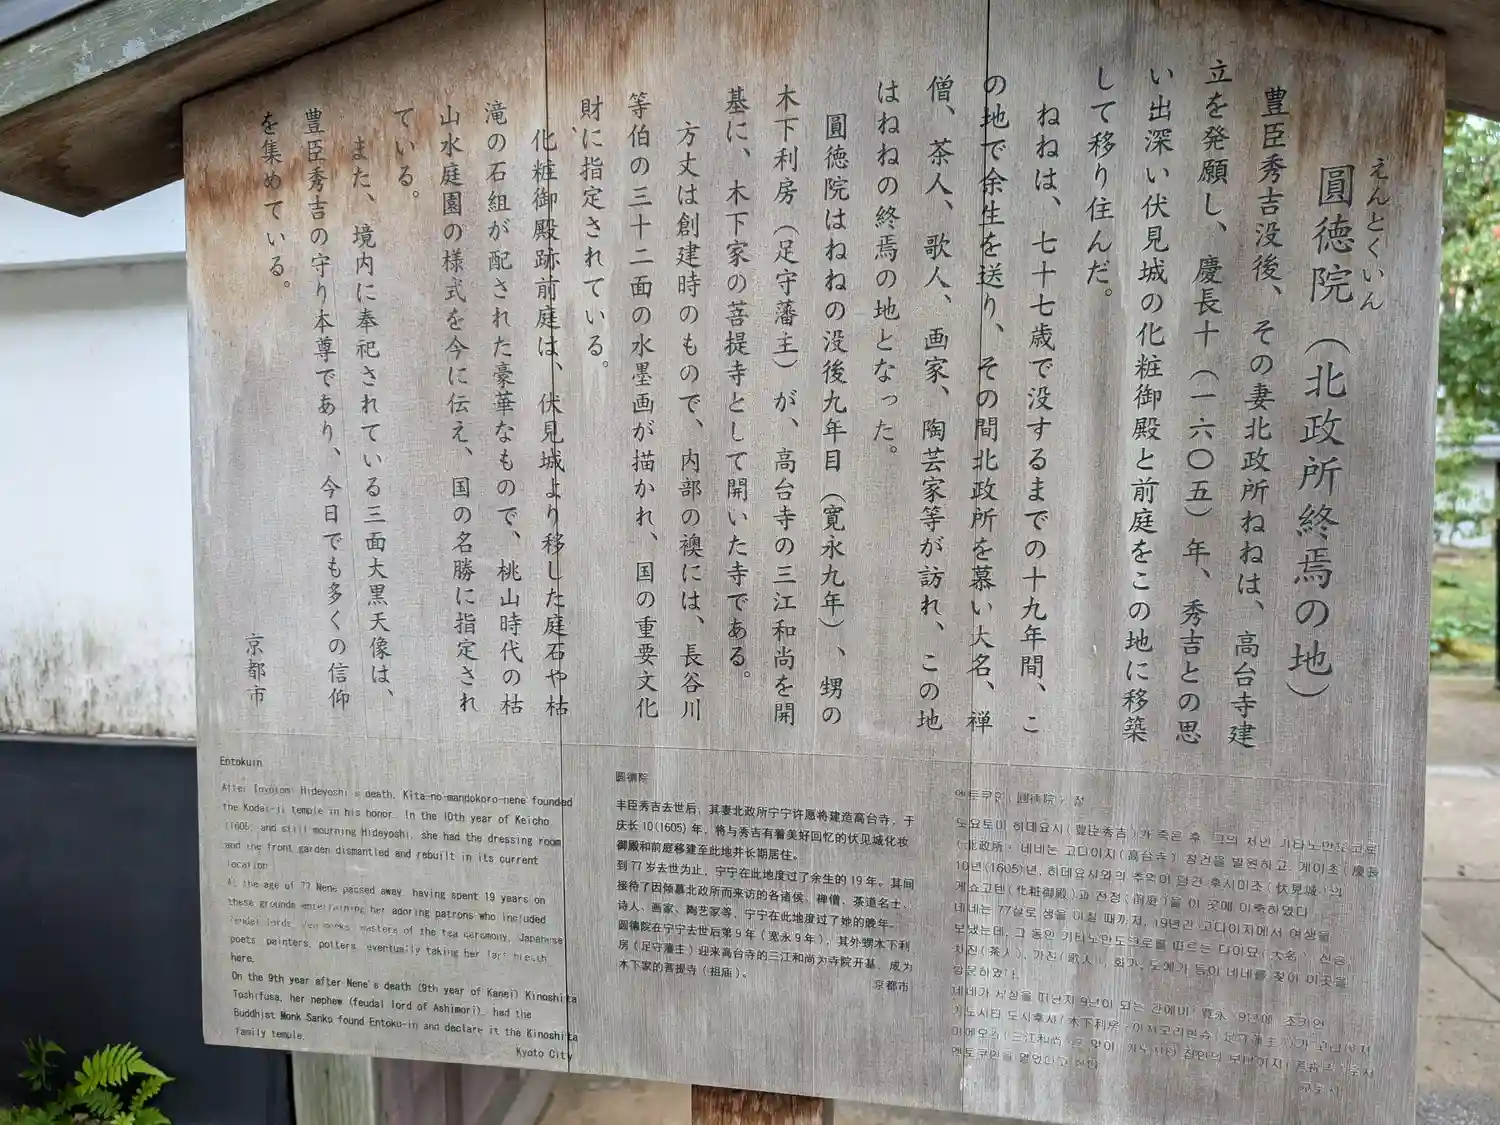 えんとくいん
圓徳院（北政所終焉の地）
豊臣秀吉没後、その妻北政所ねねは、高台寺建
立を発願し、慶長十（一六〇五）年、秀吉との思
い出深い伏見城の化粧御殿と前庭をこの地に移築
して移り住んだ。
ねねは、七十七歳で没するまでの十九年間、こ
の地で余生を送り、その間北政所を慕い大名、禅
僧、茶人、歌人、画家、陶芸家等が訪れ、この地
はねねの終焉の地となった。
圓徳院はねねの没後九年目（寛永九年）、甥の
木下利房（足守藩主）が、高台寺の三江和尚を開
基に、木下家の菩提寺として開いた寺である。
方丈は創建時のもので、内部の襖には、長谷川
等伯の三十二面の水墨画が描かれ、国の重要文化
財に指定されている。
化粧御殿跡前庭は、伏見城より移した庭石や枯
滝の石組が配された豪華なもので、桃山時代の枯
山水庭園の様式を今に伝え、国の名勝に指定され
ている。
また、境内に奉祀されている三面大黒天像は、
豊臣秀吉の守り本尊であり、今日でも多くの信仰
を集めている。
京都市
Entokuin
After Toyotomi Hideyoshi's death, Kita-no-mandokoro-nene founded
the Kodai-ji temple in his honor. In the 10th year of Keicho
(1605) and still mourning Hideyoshi, she had the dressing room
and the front garden dismantled and rebuilt in its current
location
At the age of 77 Nene passed away, having spent 19 years on
these grounds entertaining her adoring patrons who included
feudal lords, Zen monks, masters of the tea ceremony, Japanese
poets, painters, potters, eventually taking her last breath
here.
On the 9th year after Nene's death (9th year of Kanei) Kinoshita
Toshifusa, her nephew (feudal lord of Ashimori), had the
Buddhist Monk Sanko found Entoku-in and declare it the Kinoshita
family temple.
Kyoto City
圆德院
丰臣秀吉去世后，其妻北政所宁宁许愿将建造高台寺，于
庆长10(1605)年，将与秀吉有着美好回忆的伏见城化妆
御殿和前庭移建至此地并长期居住。
到77岁去世为止，宁宁在此地度过了余生的19年。其间
接待了因倾慕北政所而来访的各诸侯、禅僧、茶道名士、
诗人、画家、陶艺家等，宁宁在此地度过了她的晚年。
圆德院在宁宁去世后第9年（宽永9年），其外甥木下利
房（足守藩主）迎来高台寺的三江和尚为寺院开基，成为
木下家的菩提寺（祖庙）。
京都市
엔토쿠인（圓徳院）
토요토미 히데요시（豊臣秀吉）가 죽은 후, 그의 처인 기타노만도코로
（北政所）네네는 고다이지（高台寺）창건을 발원하고, 게이초（慶長）
10년(1605)년, 히데요시와의 추억이 담긴 후시미조（伏見城）의
게쇼고텐（化粧御殿）과 전정（前庭）을 이 곳에 이축하였다
네네는 77살로 생을 마칠 때까지, 19년간 고다이지에서 여생을
보냈는데, 그 동안 기타노만도코로를 따르는 다이묘（大名）, 선승
차진（茶人）, 가진（歌人）, 화가, 도예가 등이 네네를 찾아 이곳을
방문하였다.
네네가 세상을 떠난지 9년이 되는